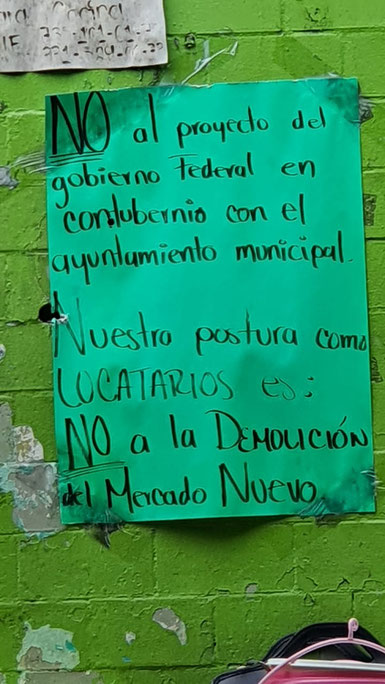 NO al proyecto del
gobierno Federal en
contubernio con el
ayuntamiento municipal.
Nuestra postura como
LOCATARIOS es:
NO a la DEMOLICIÓN
del Mercado NUEVO